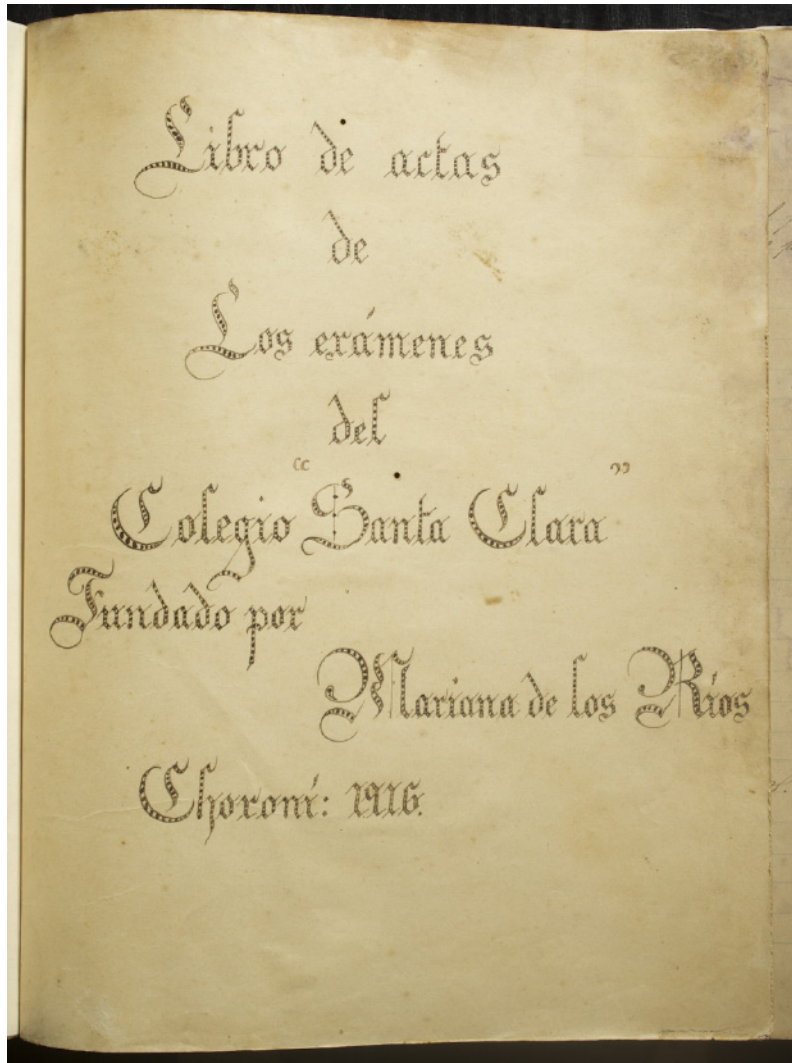 Libro de actas
de
Los exámenes
del
Colegio “Santa Clara”
Fundado por
Mariana de los Ríos
Choroní: 1916.